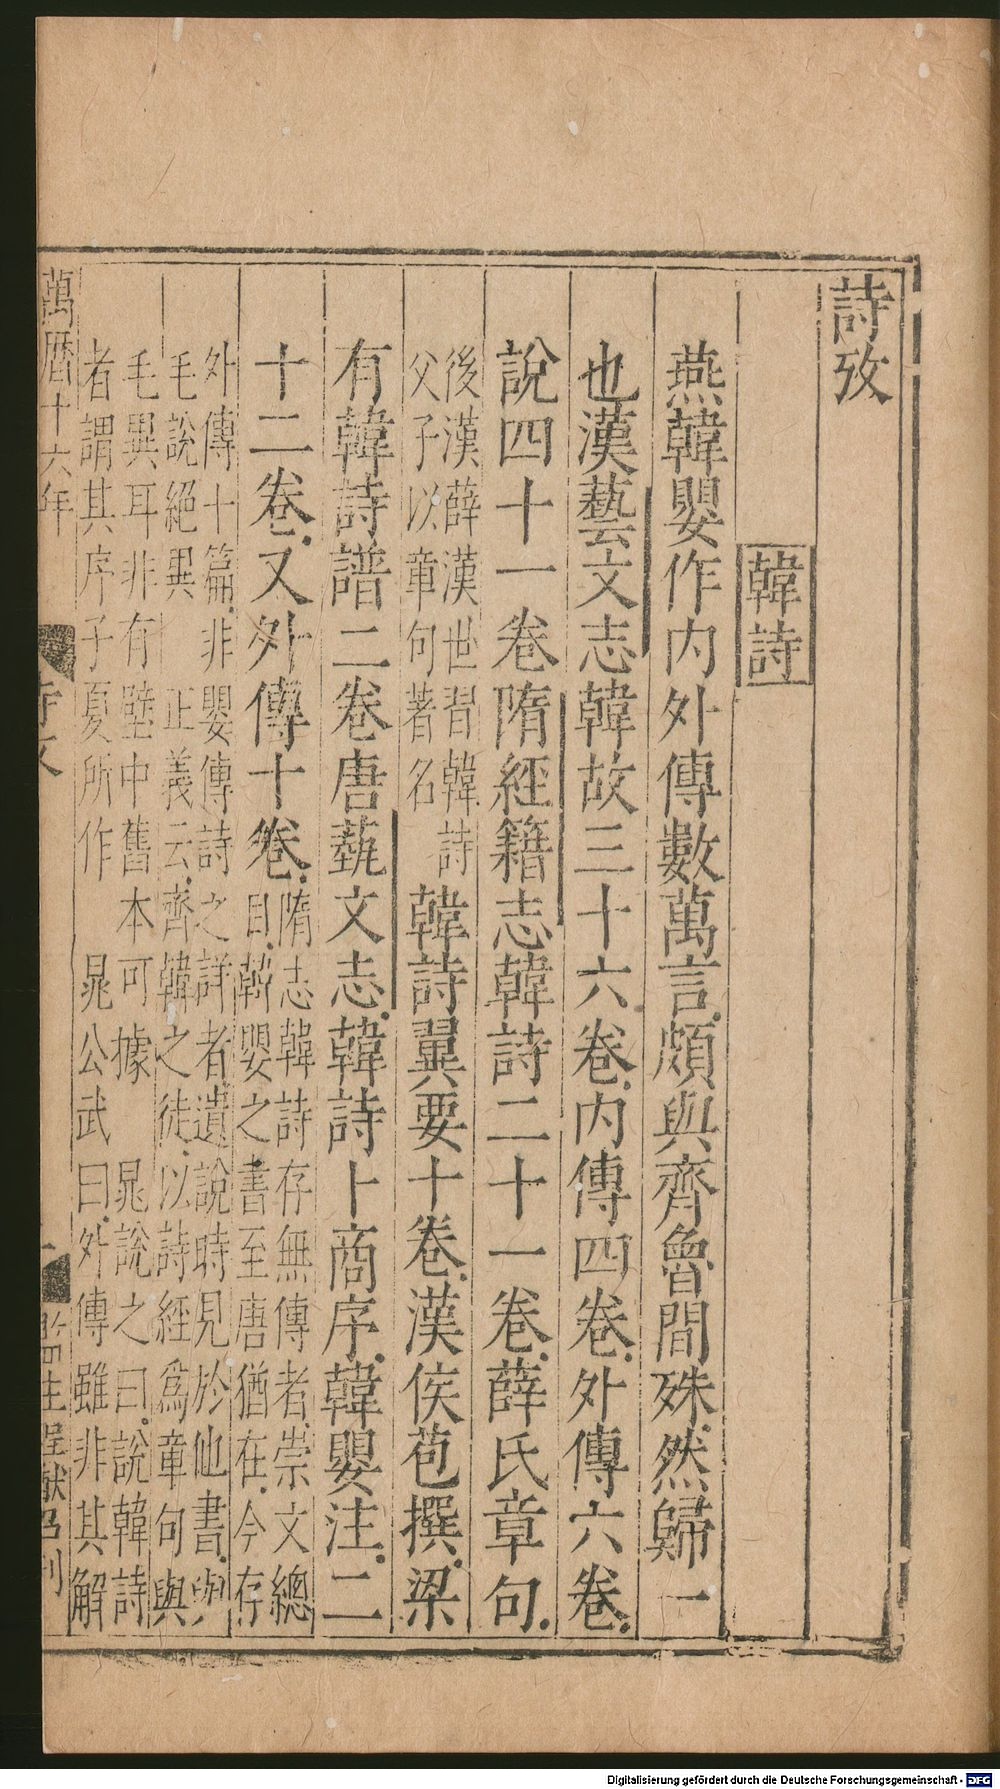 詩攷
韓詩
燕韓嬰作内外傳數萬言頗與齊魯間殊然歸一
也漢藝文志韓故三十六卷内傳四卷外傳六卷
說四十一卷隋經籍志韓詩二十一卷薛氏章句
後漢薛漢世習韓詩
父子以章句著名
韓詩翼要十卷漢侯苞撰梁
有韓詩譜二卷唐蓺文志韓詩卜商序韓嬰注二
十二卷又外傳十卷
隋志韓詩存無傳者崇文總
目韓嬰之書至唐猶在今存
外傳十篇非嬰傳詩之詳者遺說時見於他書與
毛說絕異 正義云齊韓之徒以詩經爲章句與
毛異耳非有壁中舊本可據 晁說之曰說韓詩
者謂其序子夏所作 晁公武曰外傳雖非其解
萬曆十六年
詩攷
一
監生
刊
Digitalisierung gefördert durch die Deutsche Forschungsgemeinschaft - DFG